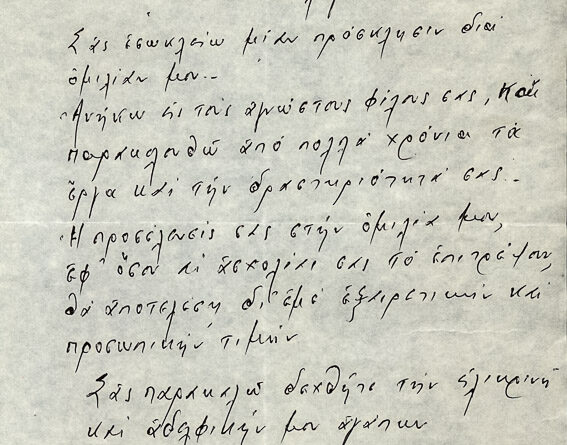 Σᾶς ἐσωκλείω μίαν πρόσκλησιν διά
ὁμιλίαν μου.-
Ἀνήκω εἰς τούς ἀγνώστους φίλους σας, καί
παρακολουθῶ ἀπό πολλά χρόνια τά
ἔργα καί τήν δραστηριότητά σας.-
Ἡ προσέλευσίς σας στήν ὁμιλία μου,
ἐφ' ὅσον αἱ ἀσχολίαι σας τό ἐπιτρέψουν,
θά ἀποτελέση δι' ἐμέ ἐξαιρετικήν καί
προσωπικήν τιμήν
Σᾶς παρακαλῶ δεχθῆτε τήν εἰλικρινῆ
καί ἀδελφικήν μου ἀγάπην